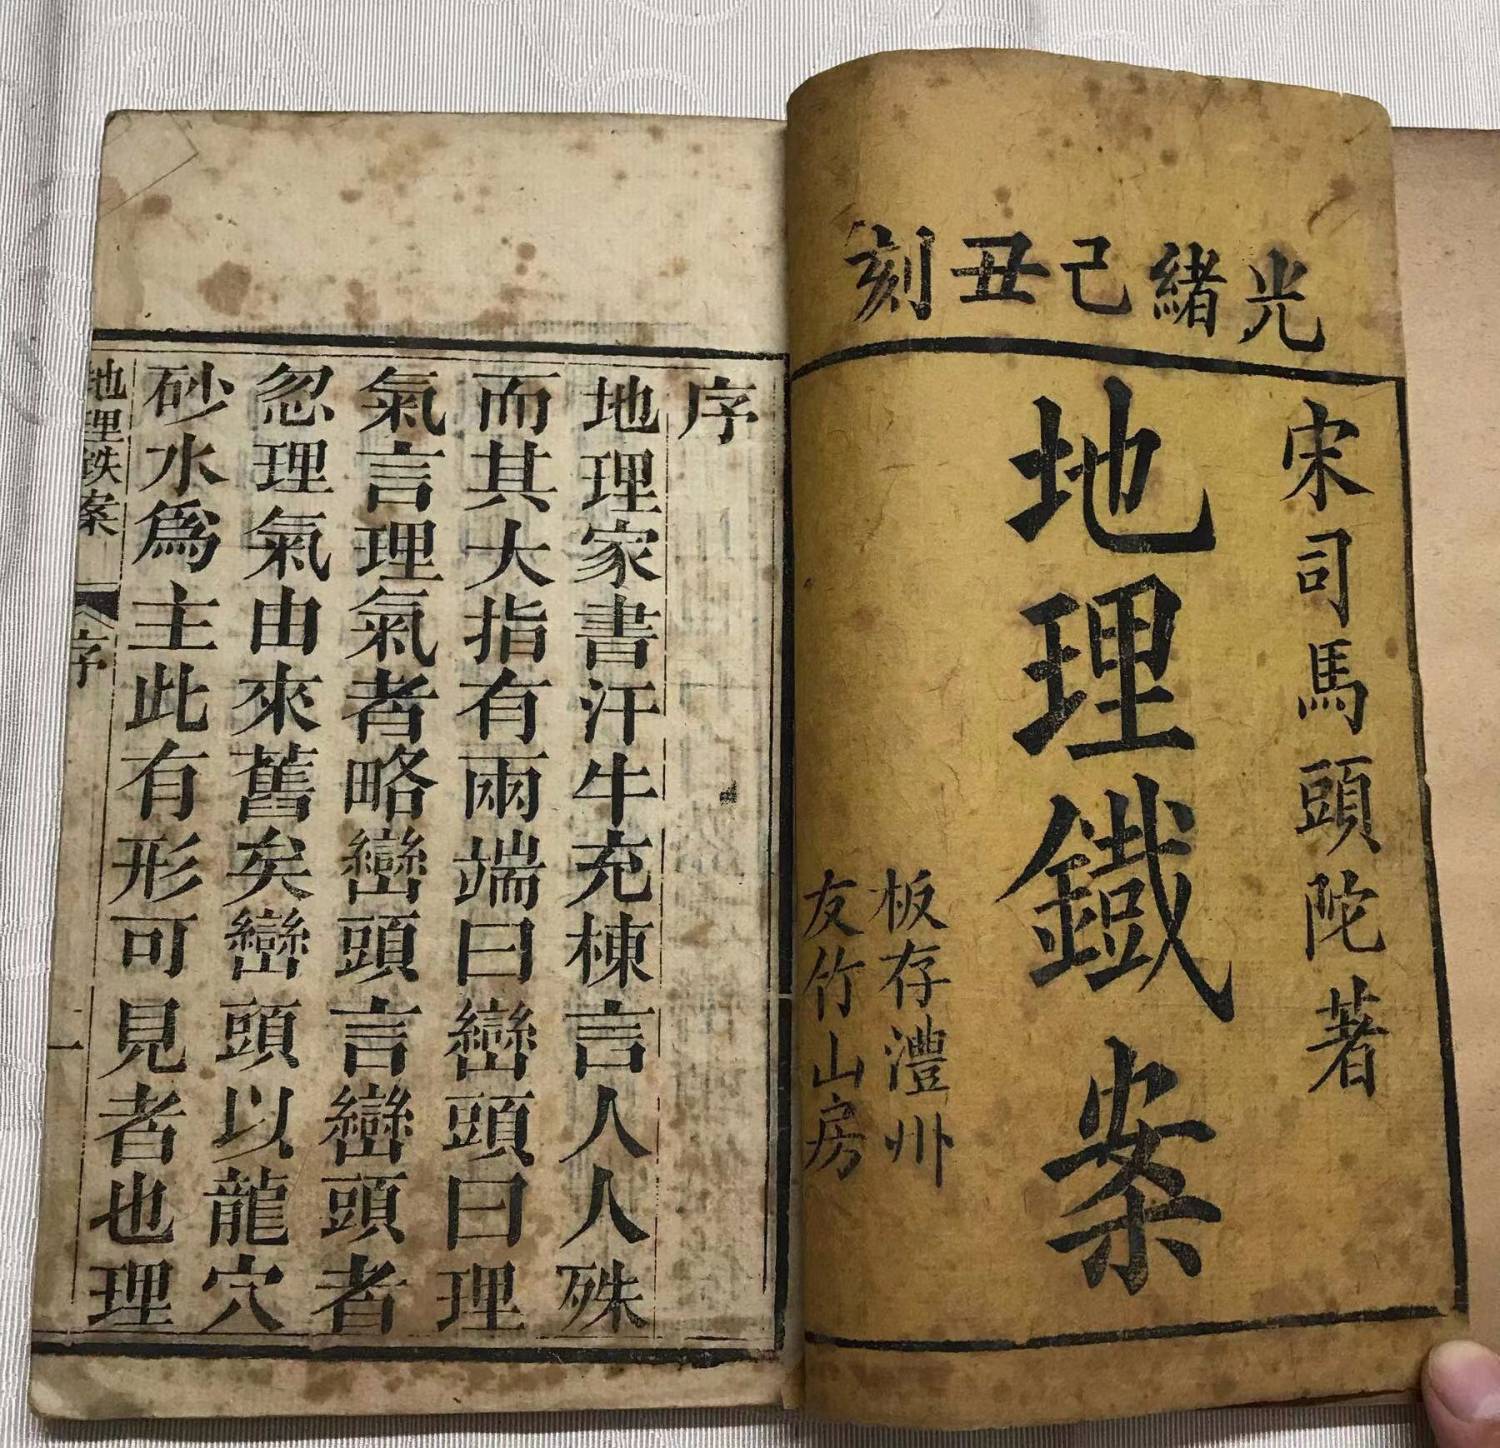 光緒己丑刻
宋司馬頭陀著
地理鐵案
板存澧州
友竹山房
序
地理家書汗牛充棟言人人殊
而其大指有兩端曰巒頭曰理
氣言理氣者略巒頭言巒頭者
忽理氣由來舊矣巒頭以龍穴
砂水爲主此有形可見者也理
地理鉄案
序
一